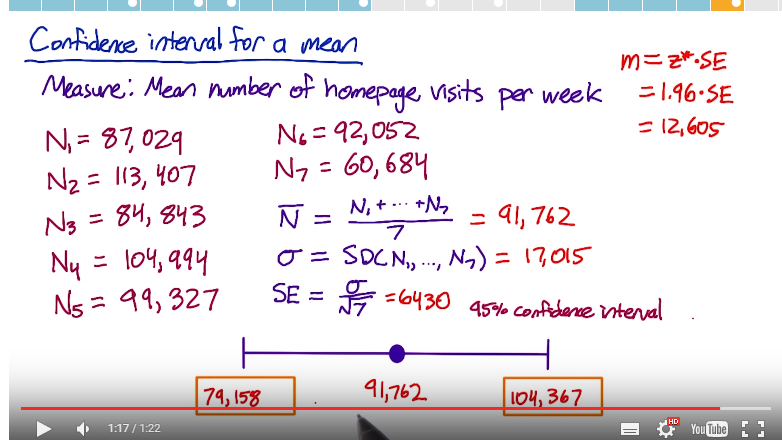 Confidence interval for a mean
Measure: Mean number of homepage visits per week
m = z*·SE
= 1.96·SE
= 12,605
N₁ = 87,029
N₂ = 113,407
N₃ = 84,843
N₄ = 104,994
N₅ = 99,327
N₆ = 92,052
N₇ = 60,684
N̅ = N₁ + ··· + N₇ / 7 = 91,762
σ = SD(N₁, ..., N₇) = 17,015
SE = σ / √7 = 6430
95% confidence interval
79,158
91,762
104,367
1:17 / 1:22
HD
YouTube